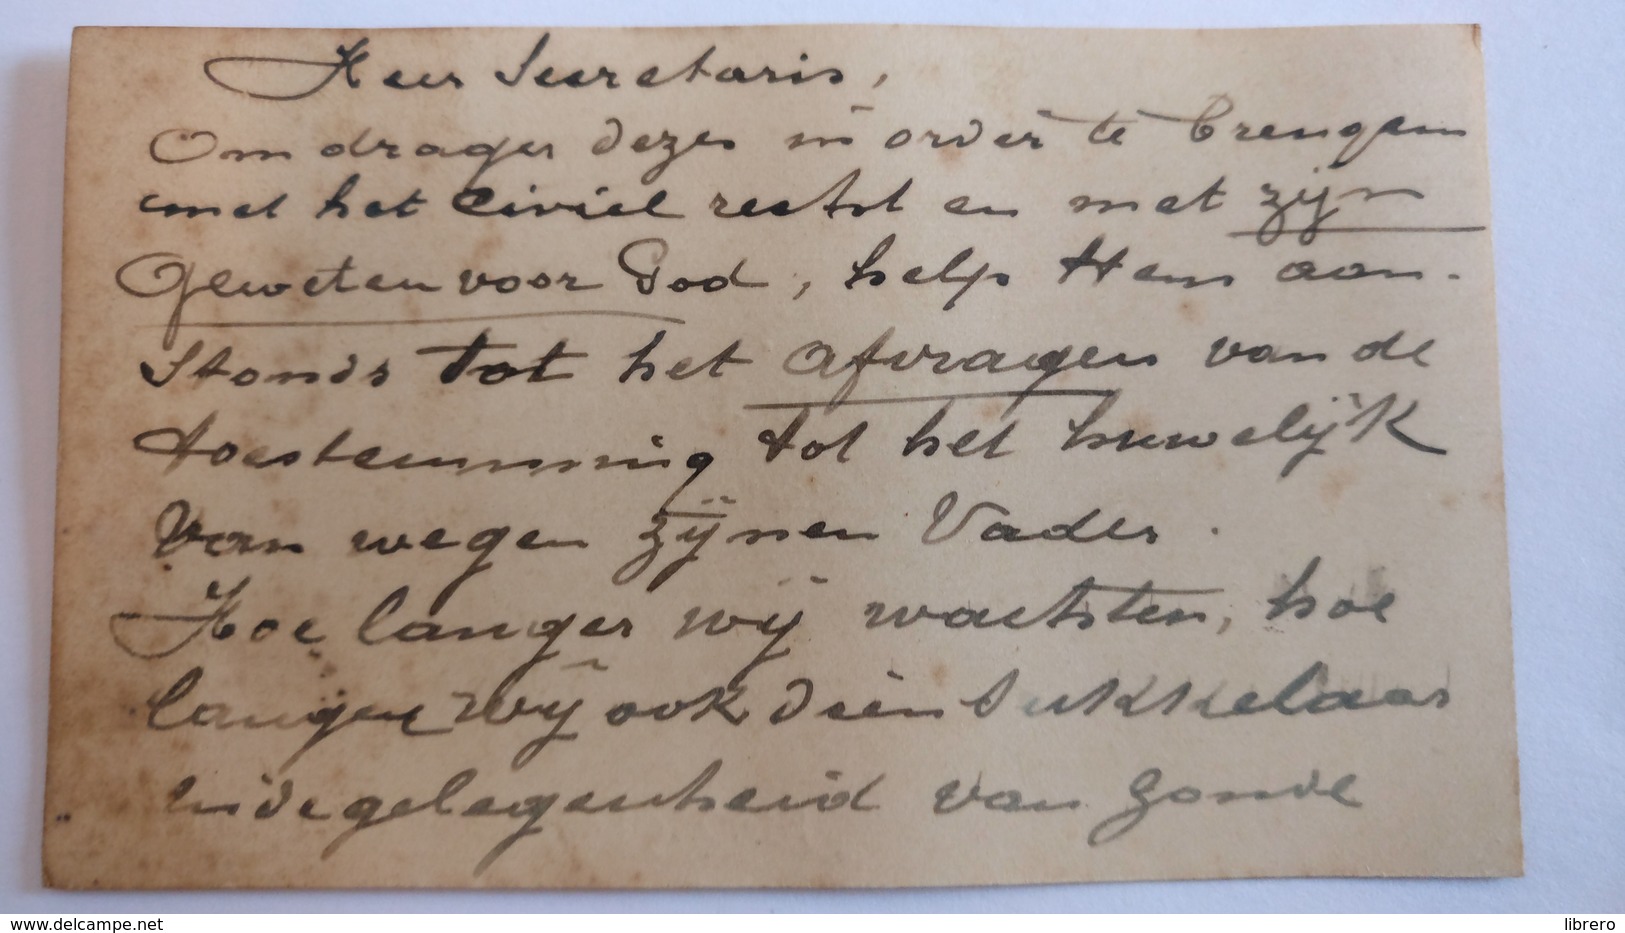 Heer Secretaris,
Om drager dezer in order te brengen
met het civiel recht en met zijn
Geweten voor God, help Hem aan-
stonds tot het afvragen van de
toestemming tot het huwelijk
van wegen zijnen Vader.
Hoe langer wij wachten, hoe
langer wij ook dien sukkelaar
in de gelegenheid van zonde
delcampe.net
librero